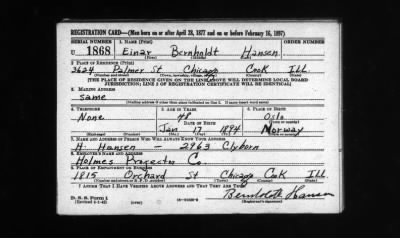 REGISTRATION CARD—(Men born on or after April 28, 1877 and on or before February 16, 1897)
SERIAL NUMBER
1. NAME (Print)
U 1868 Einar Bernholdt Hansen
2. PLACE OF RESIDENCE (Print)
3624 Palmer St Chicago Cook Ill.
[THE PLACE OF RESIDENCE GIVEN ON THE LINE ABOVE WILL DETERMINE LOCAL BOARD
JURISDICTION; LINE 2 OF REGISTRATION CERTIFICATE WILL BE IDENTICAL]
3. MAILING ADDRESS
same
[Mailing address if other than place indicated on line 2. If same insert word same]
4. TELEPHONE
5. AGE IN YEARS
6. PLACE OF BIRTH
None 48 Oslo
DATE OF BIRTH
Jan 17 1894 Norway
7. NAME AND ADDRESS OF PERSON WHO WILL ALWAYS KNOW YOUR ADDRESS
H. Hansen — 2963 Clyborn
8. EMPLOYER'S NAME AND ADDRESS
Holmes Co.
9. PLACE OF EMPLOYMENT OR BUSINESS
1815 Orchard St Chicago Cook Ill.
I AFFIRM THAT I HAVE VERIFIED ABOVE ANSWERS AND THAT THEY ARE TRUE.
D. S. S. Form 1
Bernholdt Hansen
(Registrant's signature)